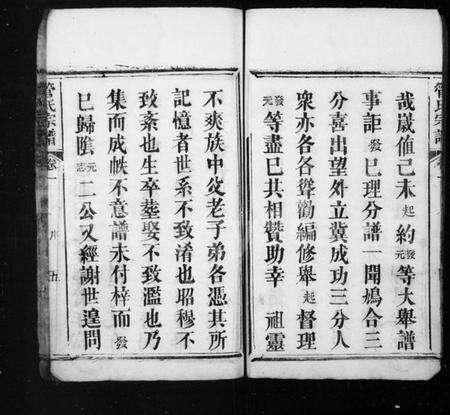 哉歲值己未起約發元等大舉譜
事詎發已理分譜一聞鳩合三
分喜出望外立冀成功三分人
衆亦各各聳勸編修舉起督理
發元等盡已共相贊助幸 祖靈
不爽族中父老子弟各憑其所
記憶者世系不致淆也昭穆不
致紊也生卒塟娶不致濫也乃
集而成帙不意譜未付梓而發
已歸陰元志二公又經謝世遑問
管氏宗譜
卷一
序
五
管氏宗譜